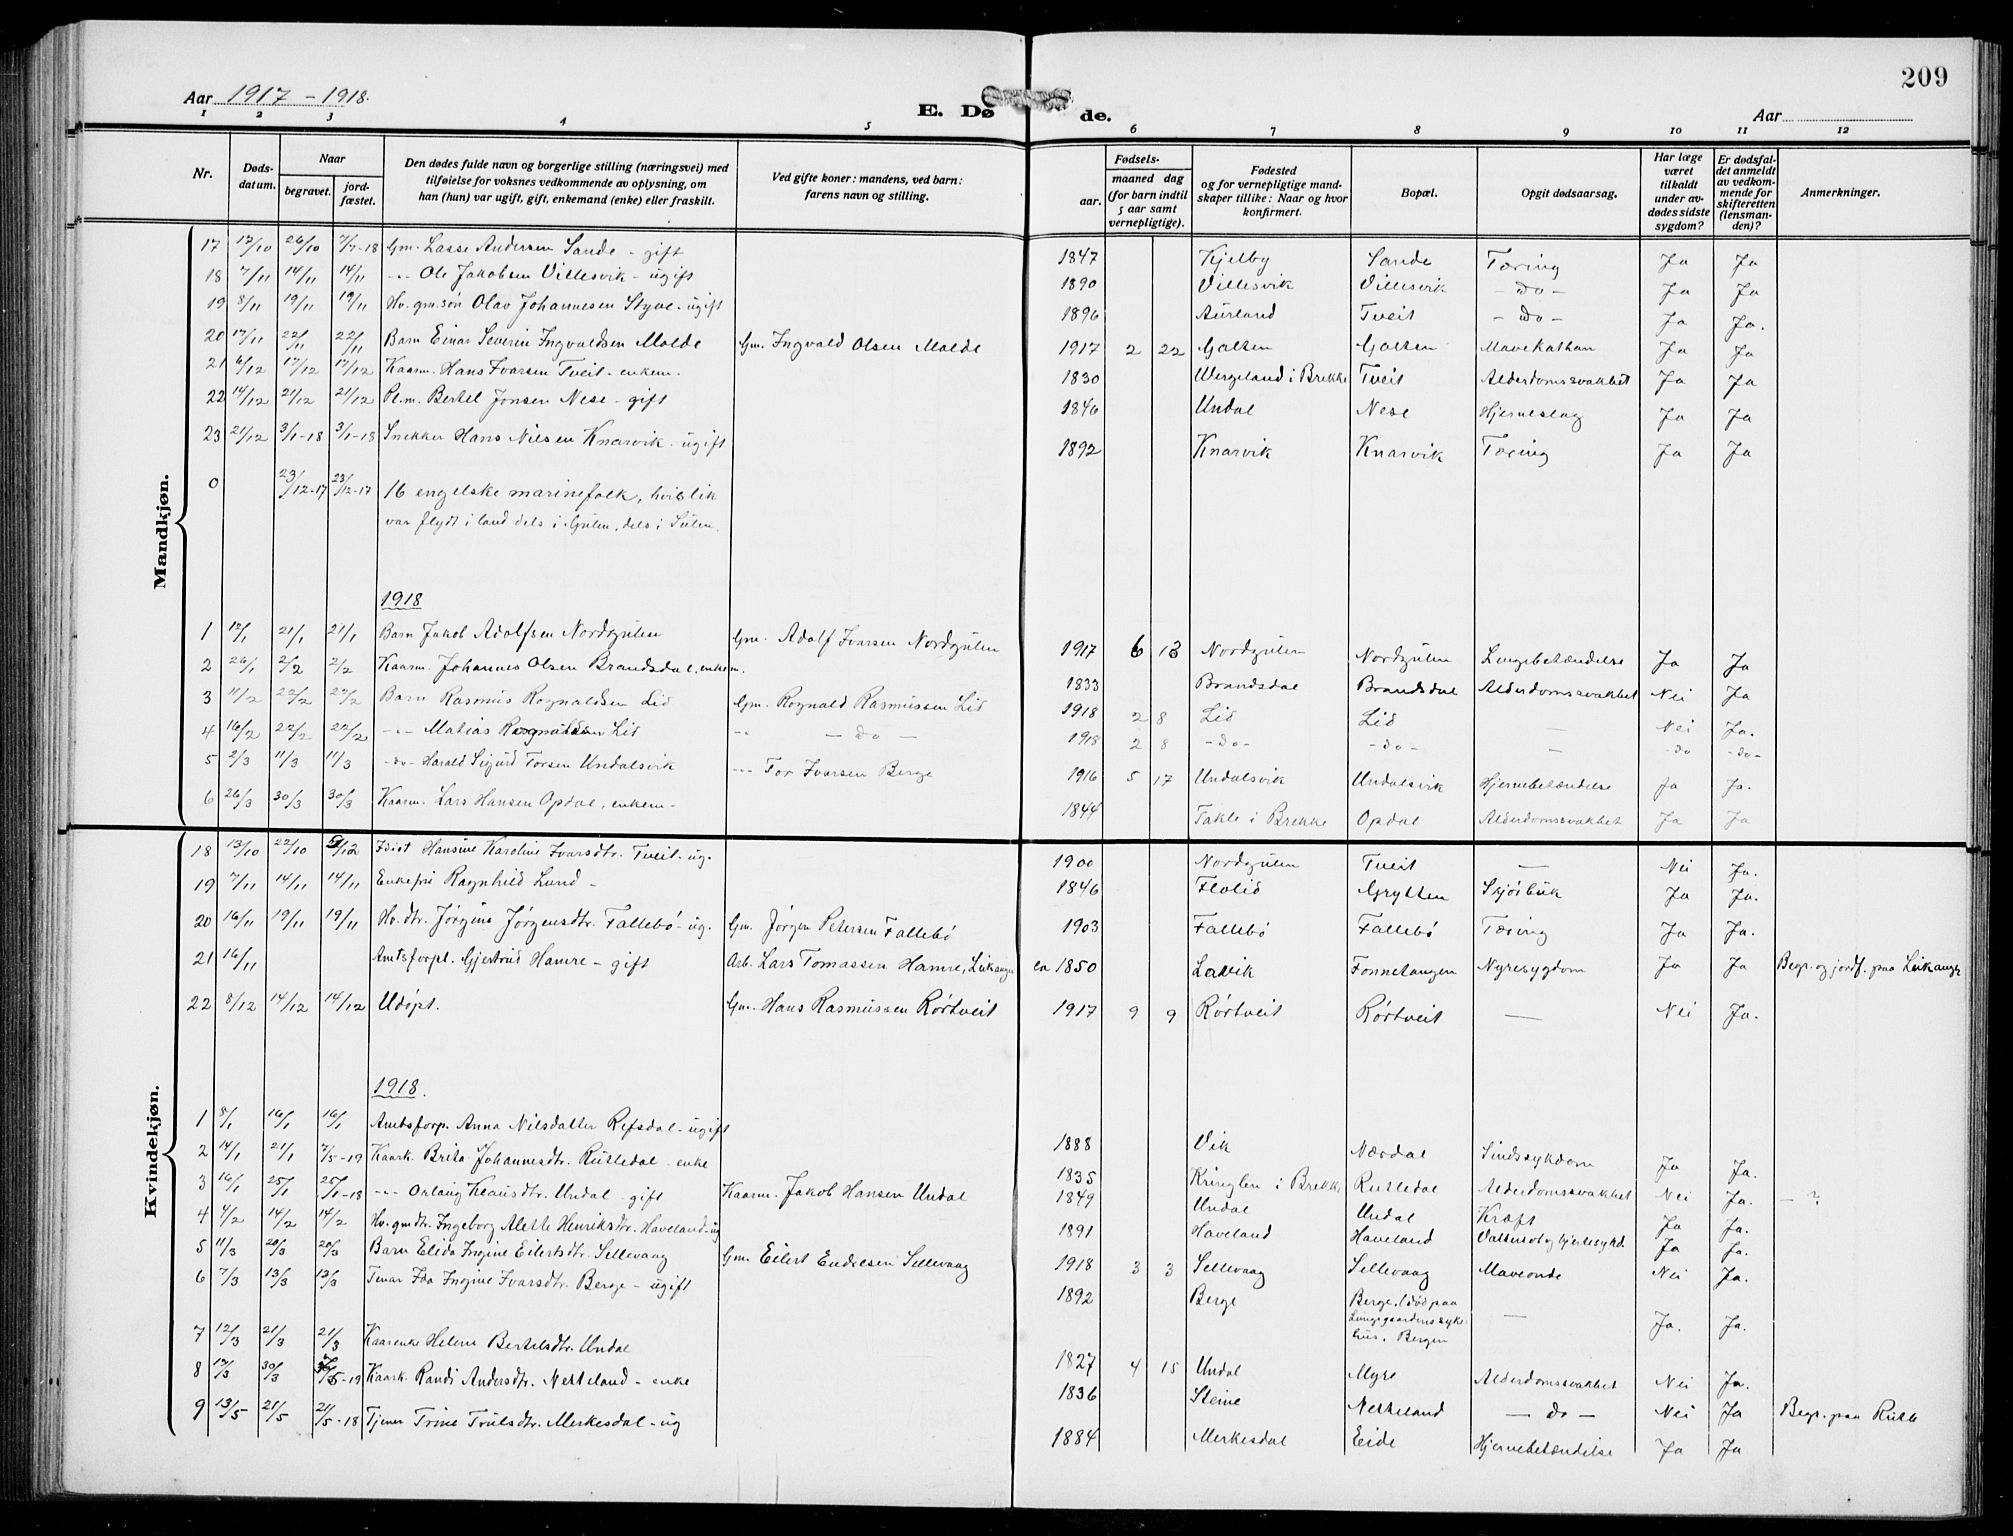 209
Aar 1917 - 1918.
E. Dø de.
Aar
1 2 3 4 5 6 7 8 9 10 11 12
Nr. Døds-datum. Naar begravet. jord-fæstet. Den dødes fulde navn og borgerlige stilling (næringsvei) med tilføielse for voksnes vedkommende av oplysning, om han (hun) var ugift, gift, enkemand (enke) eller fraskilt. Ved gifte koner: mandens, ved barn: farens navn og stilling. Fødsels- aar. maaned dag (for barn indtil 5 aar samt vernepligtige). Fødested og for vernepligtige mandskaper tillike: Naar og hvor konfirmert. Bopæl. Opgit dødsaarsag. Har læge været tilkaldt under avdødes sidste sygdom? Er dødsfaldet anmeldt av vedkommende for skifteretten (lensmanden)? Anmerkninger.
Mandkjøn.
17 17/10 26/10 7/7-18 Gm. Lasse Andersen Sande - gift 1847 Kjelby Sande Tæring Ja Ja
18 7/11 14/11 14/11 -"- Ole Jakobsen Villesvik - ugift 1890 Villesvik Villesvik - do - Ja Ja
19 8/11 19/11 19/11 Hv. gm. søn Olav Johannesen Styve - ugift 1896 Aurland Tveit - do - Ja Ja.
20 17/11 22/11 22/11 Barn Einar Severin Ingvaldsen Molde Gm. Ingvald Olsen Molde 1917 2 22 Galten Galten Mavekathar Ja Ja
21 6/12 17/12 17/12 Kaarm. Hans Ivarsen Tveit - enkem. 1830 Wergeland i Brekke Tveit Alderdomssvakhet Ja Ja
22 14/12 21/12 21/12 Pl.m. Bertel Jonsen Nese - gift 1846 Undal Nese Hjerneslag Ja Ja
23 21/12 3/1-18 3/1-18 Snekker Hans Nilsen Knarvik - ugift 1892 Knarvik Knarvik Tæring Ja Ja
0 23/12-17 23/12-17 16 engelske marinefolk, hvis lik
var flydt i land dels i Gulen, dels i Sulen.
1918
1 12/1 21/1 21/1 Barn Jakob Adolfsen Nordgulen Gm. Adolf Ivarsen Nordgulen 1917 6 13 Nordgulen Nordgulen Lungebetændelse Ja Ja
2 26/1 2/2 2/2 Kaarm. Johannes Olsen Brandsdal, enkem. 1833 Brandsdal Brandsdal Alderdomssvakhet Nei Ja
3 11/2 22/2 22/2 Barn Rasmus Rognaldsen Lid Gm. Rognald Rasmussen Lid 1918 2 8 Lid Lid - Nei Ja.
4 16/2 22/2 22/2 -"- Matias Rognaldsen Lid -"- - do - 1918 2 8 - do - - do - - - do - do -
5 2/3 11/3 11/3 - do - Harald Sigurd Torsen Undalsvik -"- Tor Ivarsen Berge 1916 5 17 Undalsvik Undalsvik Hjernebetændelse Ja Ja.
6 26/3 30/3 30/3 Kaarm. Lars Hansen Opdal, enkem. 1844 Takle i Brekke Opdal Alderdomssvakhet Ja Ja
Kvindekjøn.
18 13/10 22/10 /12 Idiot Hansine Karoline Ivarsdtr. Tveit - ug. 1900 Nordgulen Tveit - Nei Ja.
19 7/11 14/11 14/11 Enkefru Ragnhild Lund - 1846 Flolid Grytten Skjørbuk Ja Ja.
20 16/11 19/11 19/11 Hv. dtr. Jørgine Jørgensdtr. Fallebö - ug. Gm. Jørgen Petersen Fallebö 1903 Fallebö Fallebö Tæring Ja Ja.
21 16/11 Amtsforpl. Gjertrud Hamre - gift Arb. Lars Tomassen Hamre, Leikanger ca 1850 Lavik Fonnetangen Nyresygdom Ja Ja Begr. og jordf. paa Leikanger
22 8/12 14/12 14/12 Udöpt. Gm. Hans Rasmussen Rörtveit 1917 9 9 Rörtveit Rörtveit - Nei Ja.
1918.
1 8/1 16/1 16/1 Amtsforp. Anna Nilsdatter Refsdal - ugift 1888 Vik Nærdal Sindssykdom Ja Ja.
2 14/1 21/1 7/5-19 Kaark. Brita Johannesdtr. Rutledal - enke 1835 Kringlen i Brekke Rutledal Alderdomssvakhet Nei Ja. - ?
3 16/1 25/1 25/1-18 -"- Orlaug Klausdtr. Undal - gift Kaarm. Jakob Hansen Undal 1849 Undal Undal Kræft Ja Ja.
4 4/2 14/2 14/2 Hv. gmdtr. Ingeborg Alette Henriksdtr. Haveland - ug 1891 Haveland Haveland Vattersot og hjertesykd. Ja Ja.
5 11/3 20/3 20/3 Barn Elida Ingine Eilertsdtr. Sellevaag Gm. Eilert Endresen Sellevaag 1918 3 3 Sellevaag Sellevaag Maveonde Nei Ja.
6 7/3 13/3 13/3 Tenar Ida Ingine Ivarsdtr. Berge - ugift 1892 Berge Berge, (död paa Lungegaardens sykehus, Bergen - Ja. Ja.
7 12/3 21/3 21/3 Kaarenke Helene Bertelsdtr. Undal 1827 4 15 Undal Myre Alderdomssvakhet Nei Ja.
8 17/3 30/3 /5-19 Kaark. Randi Andersdtr. Nekkeland - enke 1836 Steine Nekkeland - do - Nei Ja Begr. paa
9 13/5 21/5 21/5-18 Tjener Trine Trulsdtr. Merkesdal - ug 1884 Merkesdal Eide Hjernebetændelse Ja Ja